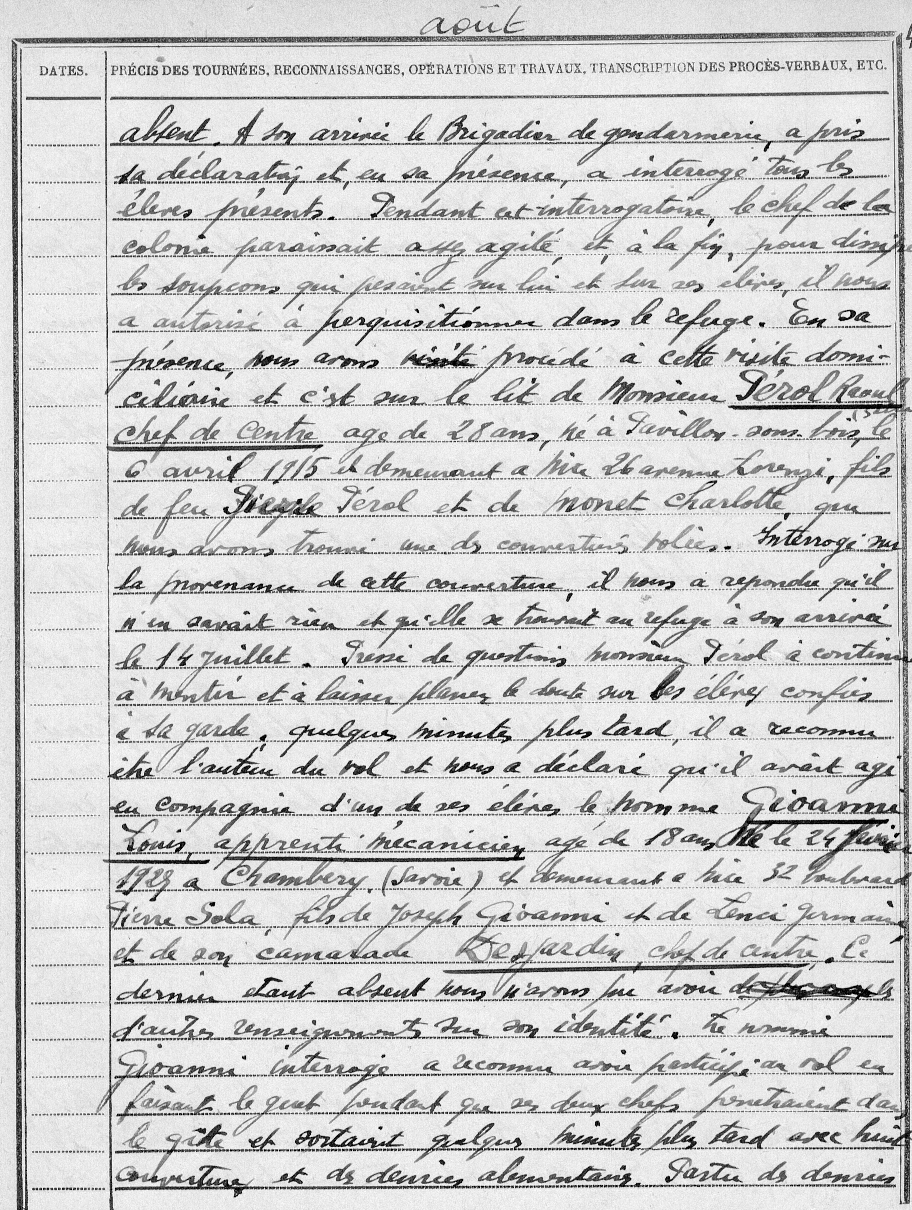 août
DATES. PRÉCIS DES TOURNÉES, RECONNAISSANCES, OPÉRATIONS ET TRAVAUX, TRANSCRIPTION DES PROCÈS-VERBAUX, ETC.
absent. A son arrivée le Brigadier de gendarmerie, a pris
sa déclaration et, en sa présence, a interrogé tous les
élèves présents. Pendant cet interrogatoire, le chef de la
colonie paraissait assez agité et, à la fin, pour
les soupçons qui pesaient sur lui et sur ses élèves, il nous
a autorisé à perquisitionner dans le refuge. En sa
présence, nous avons visité procédé à cette visite domi-
ciliaire et c'est sur le lit de Monsieur Pérol Raoul
chef de centre age de 28 ans, né à Pavillon-sous-bois, le
6 avril 1915 et demeurant a Nice 26 avenue Lorenzi, fils
de feu Pérol et de Monet Charlotte, que
nous avons trouvé une des couvertures volées. Interrogé sur
la provenance de cette couverture, il nous a repondre qu'il
n'en savait rien et qu'elle se trouvait au refuge à son arrivée
le 14 Juillet. Pressé de questions monsieur Pérol à continu
à mentir et à laisser planer le doute sur les élèves confiés
à sa garde. quelques minutes plus tard, il a reconnu
être l'auteur du vol et nous a déclaré qu'il avait agi
en compagnie d'un de ses élèves le nommé Gioanni
Louis, apprenti mécanicien agé de 18 ans Né le 24
a Chambery (Savoie) et demeurant a Nice 32 boulevard
Pierre Sola, fils de Joseph Gioanni et de Lenci Germaine
et de son camarade Desjardin, chef de centre. Ce
dernier etant absent nous n'avons pu avoir
d'autres renseignements sur son identité. Le nommé
Gioanni interrogé a reconnu avoir participé au vol en
faisant le guet pendant que ses deux chefs penetraient dans
le gîte et sortaient quelques minutes plus tard avec huit
couvertures et des denrées alementaires. Partie des denrées